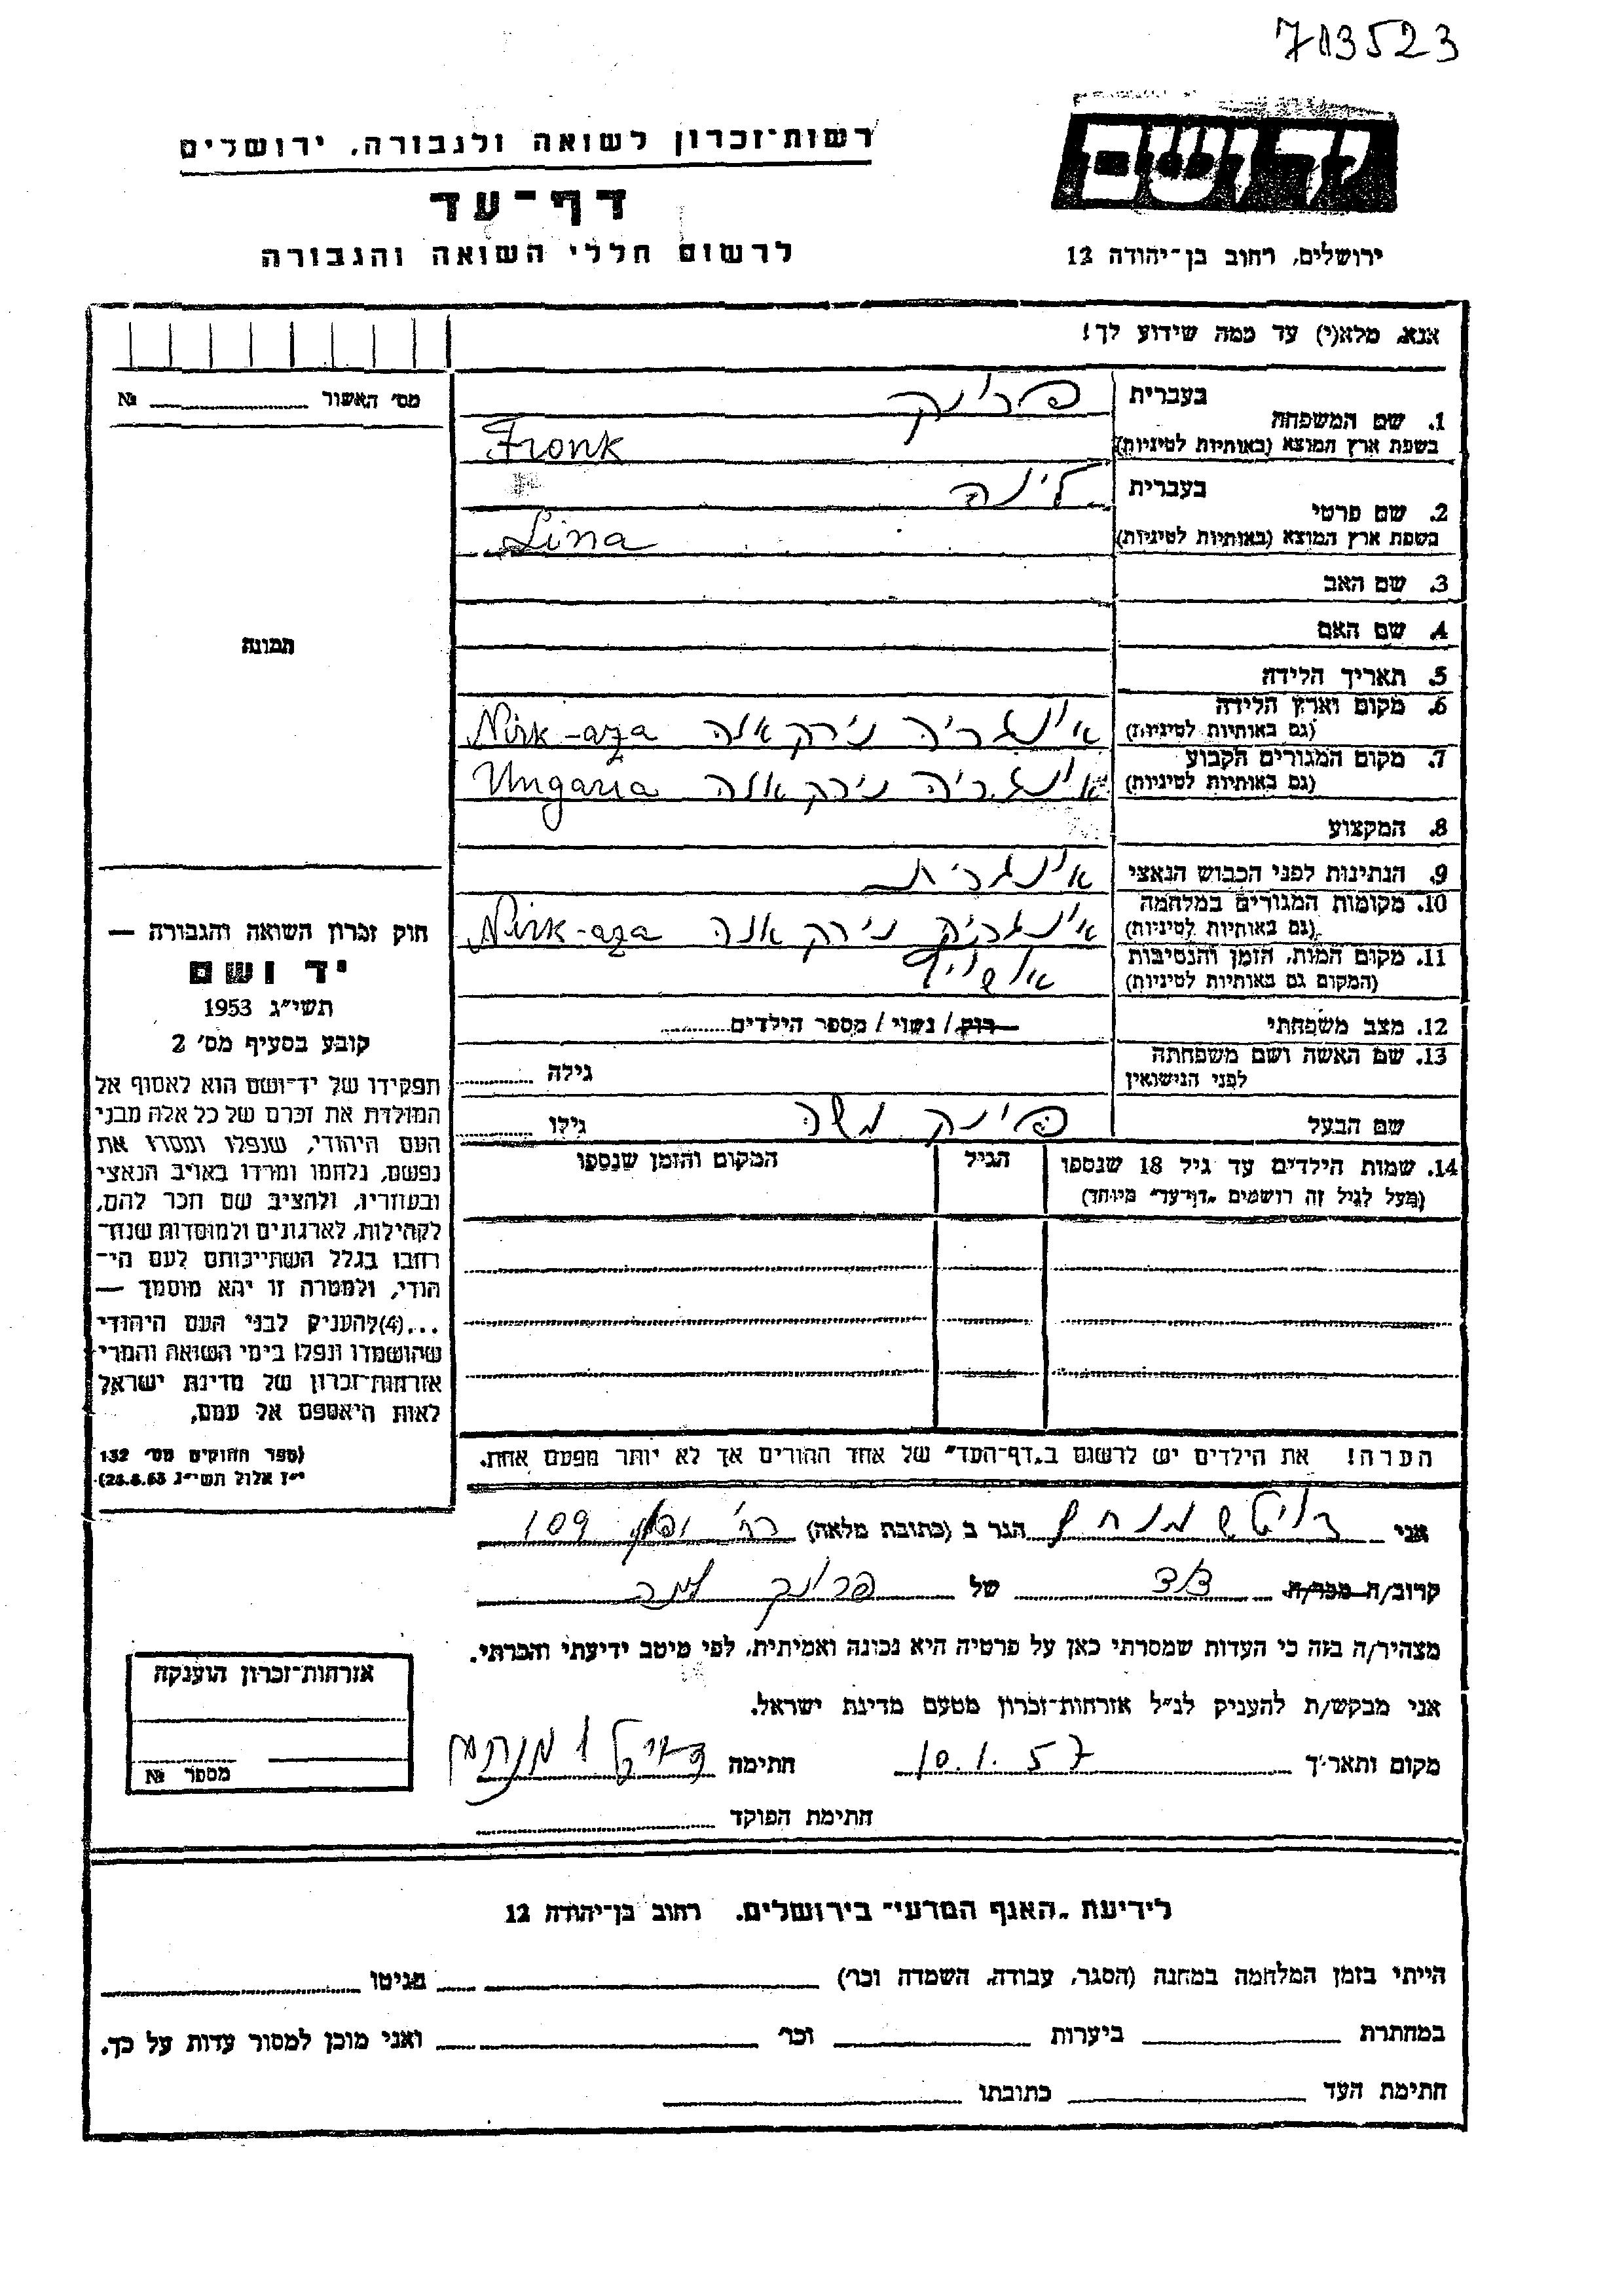 713523
רשות־זכרון לשואה ולגבורה, ירושלים
דף־עד
לרשום חללי השואה והגבורה
יד ושם
ירושלים, רחוב בן־יהודה 12
אנא, מלא(י) עד כמה שידוע לך!
מס׳ האשור № 
1. שם המשפחה בעברית
בשפת ארץ המוצא (באותיות לטיניות) Fronk
2. שם פרטי בעברית לינה
בשפת ארץ המוצא (באותיות לטיניות) Lina
3. שם האב
4. שם האם
תמונה
5. תאריך הלידה
6. מקום וארץ הלידה
(גם באותיות לטיניות) אונגריה נירקאזה Nirk-aza
7. מקום המגורים הקבוע
(גם באותיות לטיניות) אונגריה נירקאזה Ungaria
8. המקצוע
9. הנתינות לפני הכבוש הנאצי אונגרית
10. מקומות המגורים במלחמה
(גם באותיות לטיניות) אונגריה נירקאזה Nirk-aza
11. מקום המות, הזמן והנסיבות
(המקום גם באותיות לטיניות) אושויץ
12. מצב משפחתי רוק / נשוי / מספר הילדים
13. שם האשה ושם משפחתה
לפני הנישואין גילה
שם הבעל משה גילו
14. שמות הילדים עד גיל 18 שנספו הגיל המקום והזמן שנספו
(מעל לגיל זה רושמים „דף־עד״ מיוחד)
הערה! את הילדים יש לרשום ב„דף־העד״ של אחד ההורים אך לא יותר מפעם אחת.
חוק זכרון השואה והגבורה —
יד ושם
תשי״ג 1953
קובע בסעיף מס׳ 2
תפקידו של יד־ושם הוא לאסוף אל
המולדת את זכרם של כל אלה מבני
העם היהודי, שנפלו ומסרו את
נפשם, נלחמו ומרדו באויב הנאצי
ובעוזריו, ולהציב שם וזכר להם,
לקהילות, לארגונים ולמוסדות שנח־
רבו בגלל השתייכותם לעם הי־
הודי, ולמטרה זו יהא מוסמך —
...(4)להעניק לבני העם היהודי
שהושמדו ונפלו בימי השואה והמרי
אזרחות־זכרון של מדינת ישראל
לאות היאספם אל עמם,
(ספר החוקים מס׳ 132
י״ז אלול תשי״ג 28.8.53)
אני הגר ב (כתובת מלאה) רח׳ 109
קרוב/ה מכר/ה דוד של
מצהיר/ה בזה כי העדות שמסרתי כאן על פרטיה היא נכונה ואמיתית, לפי מיטב ידיעתי והכרתי.
אני מבקש/ת להעניק לנ״ל אזרחות־זכרון מטעם מדינת ישראל.
מקום ותאריך 10.1.57 חתימה
חתימת הפוקד
אזרחות־זכרון הוענקה
מספר №
לידיעת „האגף המדעי״ בירושלים, רחוב בן־יהודה 12
הייתי בזמן המלחמה במחנה (הסגר, עבודה, השמדה וכו׳) בגיטו
במחתרת ביערות וכו׳ ואני מוכן למסור עדות על כך.
חתימת העד כתובתו